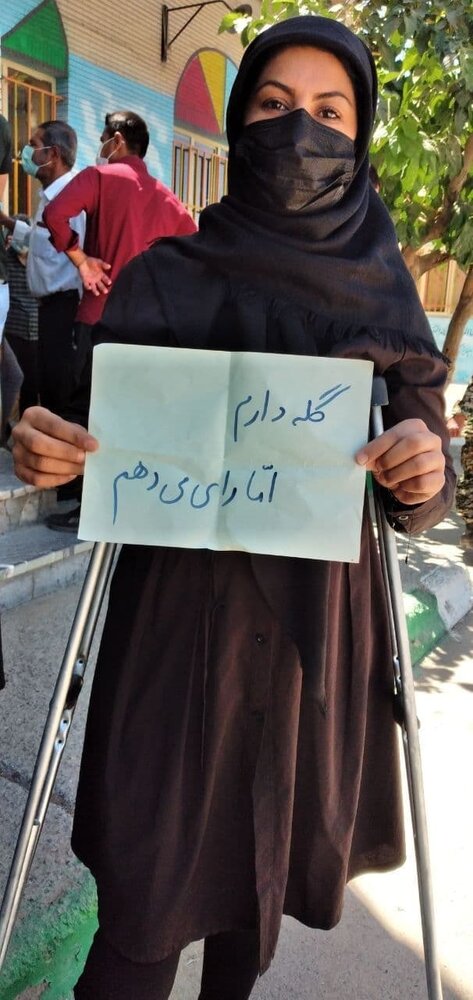 گله دارم
امّا رای می دهم